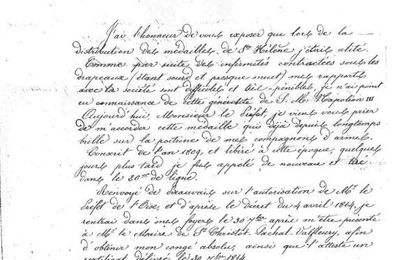 J'ai l'honneur de vous exposer que lors de la
distribution des medailles, de Ste Hélène j'étais alité.
Comme par suite des infirmités contractées sous les
drapeaux (étant sourd et presque muet) mes rapports
avec la société ont difficiles et très-pénibles, je n'ai point
eu connaissance de cette générosité de S. M. Napoléon III
Aujourd'hui, Monsieur le Préfet, je viens vous prier
de m'accorder cette medaille qui déjà depuis longtemps
brille sur la poitrine de mes compagnons d'armes.
Conscrit de l'an 1809, et libéré à cette époque, quelques
jours plus tard je fus appelé de nouveau et
dans le 30me de ligne.
Renvoyé de Beauvais sur l'autorisation de Mr le
Préfet de l'Oise, et d'après le décret du 4 avril 1814, je
rentrai dans mes foyers le 30 7bre après m'être présenté
à Mr le Maire de St Christôt Lachal-Valfleury, afin
d'obtenir mon congé absolu, ainsi que l'atteste un
certificat délivré le 30 7bre 1814.